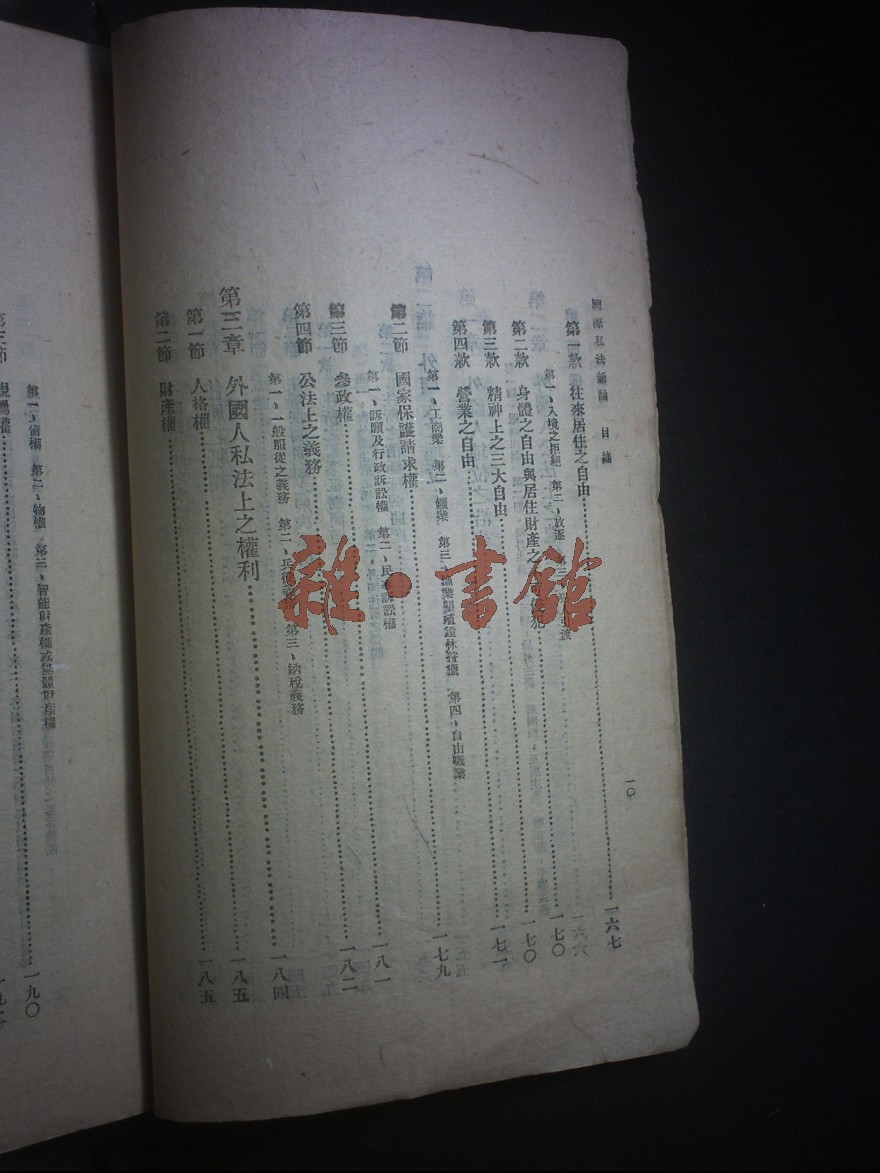 國際私法新論 目錄 一〇
第一款 往來居住之自由……一六七
第一、入境之拒絕 第二、放逐 第三、渡
第二款 身體之自由與居住財產之犯……一七〇
第三款 精神上之三大自由……一七〇
第四款 營業之自由……一七一
第一、工商業 第二、鑛業 第三、漁業墾殖造林狩獵 第四、自由職業
第二節 國家保護請求權……一七九
第一、訴願及行政訴訟權 第二、民事訴訟權
第三節 參政權……一八一
第四節 公法上之義務……一八二
第一、一般服從之義務 第二、兵役義務 第三、納稅義務
第三章 外國人私法上之權利……一八四
第一節 人格權……一八五
第二節 財產權……一八五
第一、債權 第二、物權 第三、智能財產權或無體財產權
第三節 親屬權……一九〇
雜·書館